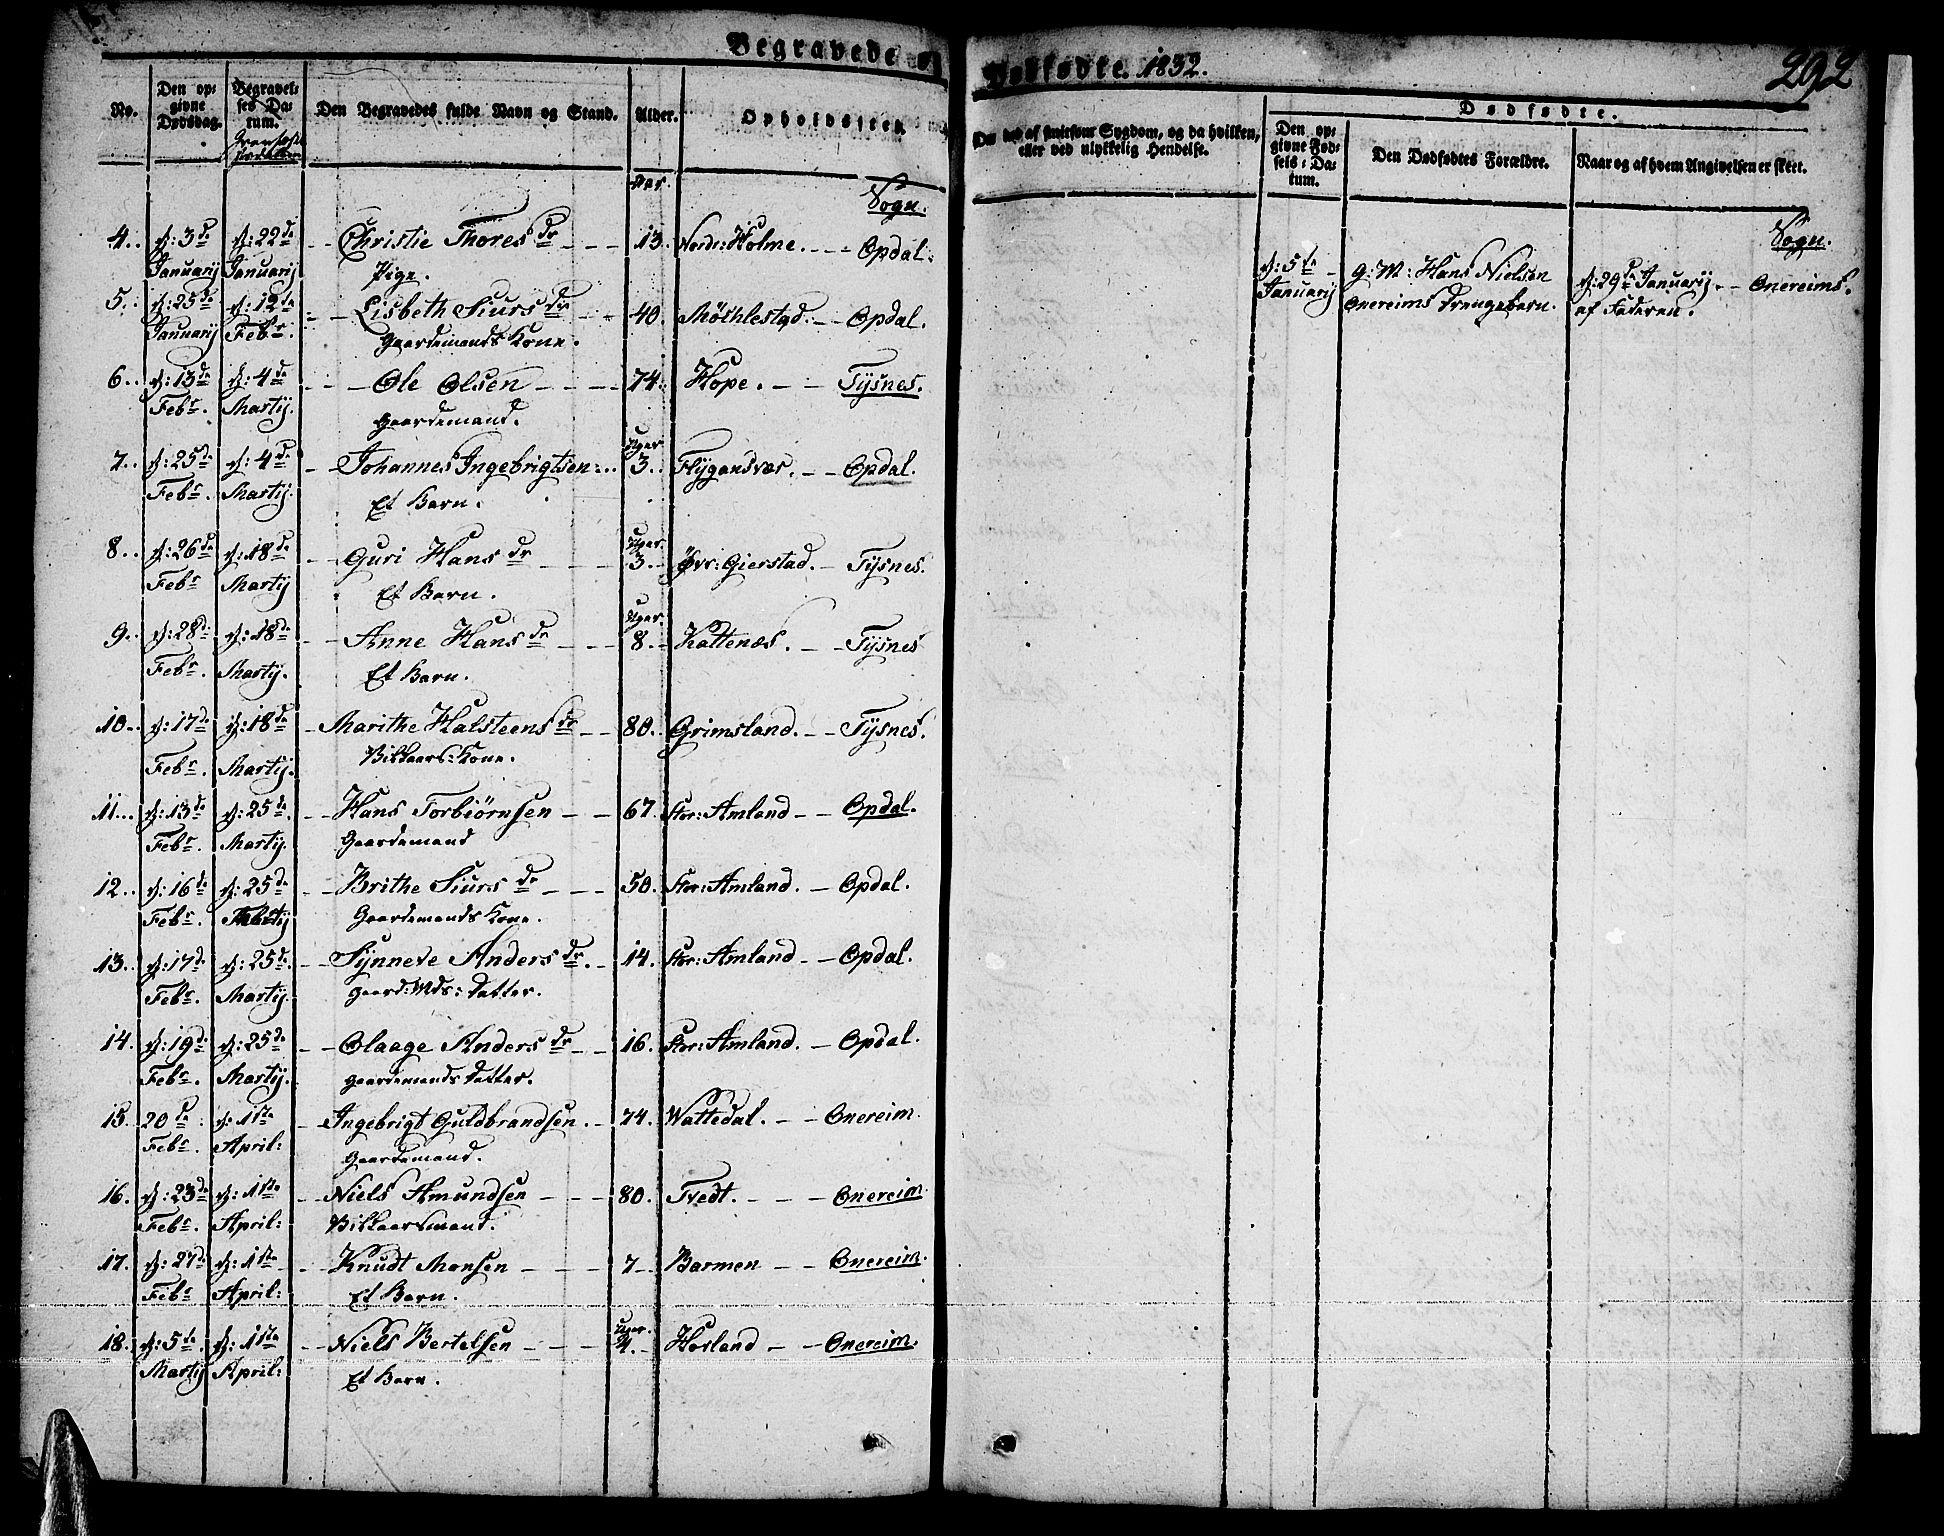 Begravede og
Dødfødte. 1832.
292
No.
Den opgivne Dødsdag.
Begravelses Datum.
Den Begravedes fulde Navn og Stand.
Alder.
Opholdssted.
Om død af smitsom Sygdom, og da hvilken, eller ved ulykkelig Hendelse.
Dødfødte.
Den opgivne Fødsels-Datum.
Den Dødfødtes Forældre.
Naar og af hvem Angivelsen er skeet.
Aar.
Sogn.
4. d: 3de d: 22de Christie Thoresdr 13. Nordr: Holme. Opdal.
Januarij Januarij Pige.
5. d: 25de d: 12te Lisbeth Siursdr 40. Møkhlestad. Opdal.
Januarij Febr. Gaardemands Kone.
6. d: 13de d: 4de Ole Olsen 74. Hope. Tysnes.
Febr. Martij. Gaardemand.
Uger.
7. d: 25de d: 4de Johannes Ingebrigtsen 3. Flygansvær. Opdal.
Febr. Martij. Et Barn.
Uger.
8. d: 26de d: 18de Guri Hansdr 3. Øvr: Gierstad. Tysnes.
Febr Martij Et Barn.
Uger.
9. d: 28de d: 18de Anne Hansdr 8. Kattenæs. Tysnes
Febr. Martij. Et Barn.
10. d: 17de d: 18de Marithe Halsteensdr 80. Grimsland. Tysnes.
Febr. Martij. Vilkaars: Kone.
11. d: 13de d: 25de Hans Torbiørnsen 67. Stor: Amland Opdal.
Febr. Martij. Gaardemand
12. d: 16de d: 25de Brithe Siursdr 50. Stor: Amland. Opdal.
Febr. Martij Gaardemands Kone.
13. d: 17de d: 25de Synneve Andersdr. 14. Stor: Amland Opdal.
Febr. Martij. Gaard: Mds: Datter.
14. d: 19de d: 25de Olaage Andersdr 16. Stor: Amland. Opdal.
Febr. Martij. Gaardemands Datter.
15. 20de d: 1ste Ingebrigt Guldbrandsen. 74. Wattedal. Onereim.
Febr. April: Gaardemand.
16. d: 23de d: 1ste Niels Amundsen 80. Tvedt. Onereim.
Febr. April: Vilkaarsmand.
17. d: 27de d: 1ste Knudt Monsen 7 Barmen Onereim.
Febr April: Et Barn.
Uger.
18. d: 5te d: 1ste Niels Bertelsen 4. Horland Onereim.
Martij April: Et Barn.
Sogn.
d: 5te G: M: Hans Nielsen d: 29de Januarij. Onereims.
Januarij Onereims Drengebarn. af Faderen.